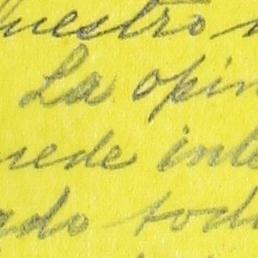 uestro
La opin
uede inte
ado tod